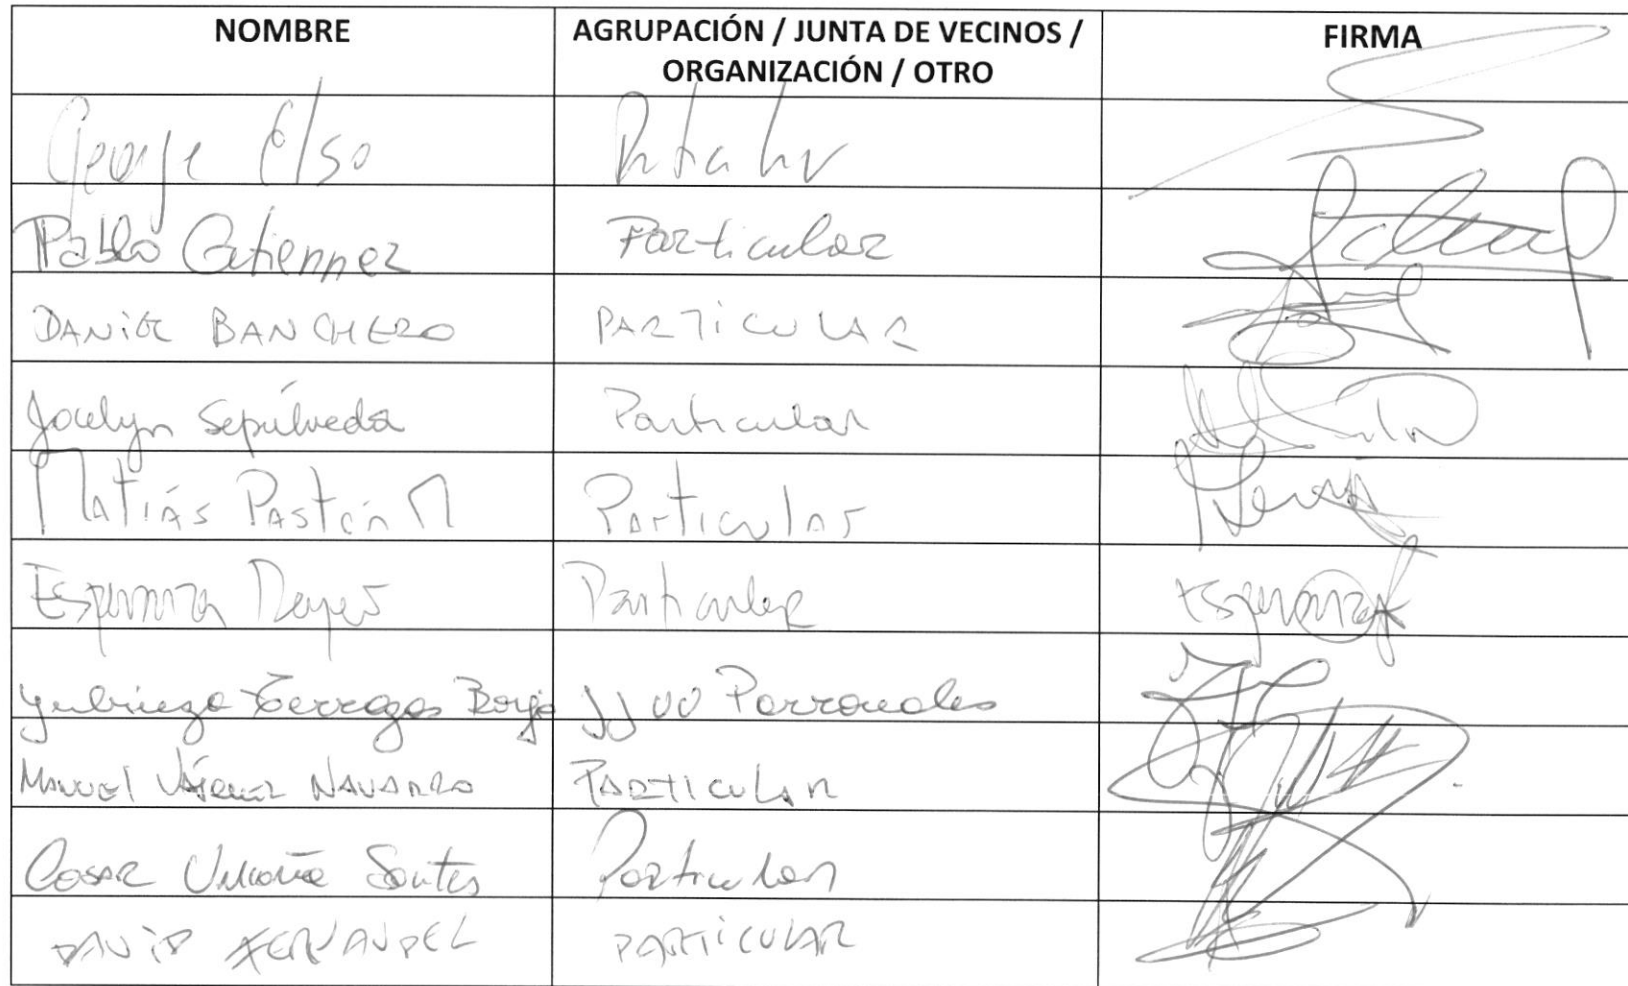 NOMBRE AGRUPACIÓN / JUNTA DE VECINOS / FIRMA
ORGANIZACIÓN / OTRO
George Elso
Pablo Gutierrez Particular
DANiEL BANCHERO PARTiCULAR
Jocelyn Sepúlveda Particular
Matías Pastén M Particular
Esperanza Reyes Particular Esperanza
Terrazas Borja JJ VV Parronales
Manuel Vásquez Navarro Particular
Cesar Umaña Santos Particular
DAViD FERNANDEZ PARTiCULAR